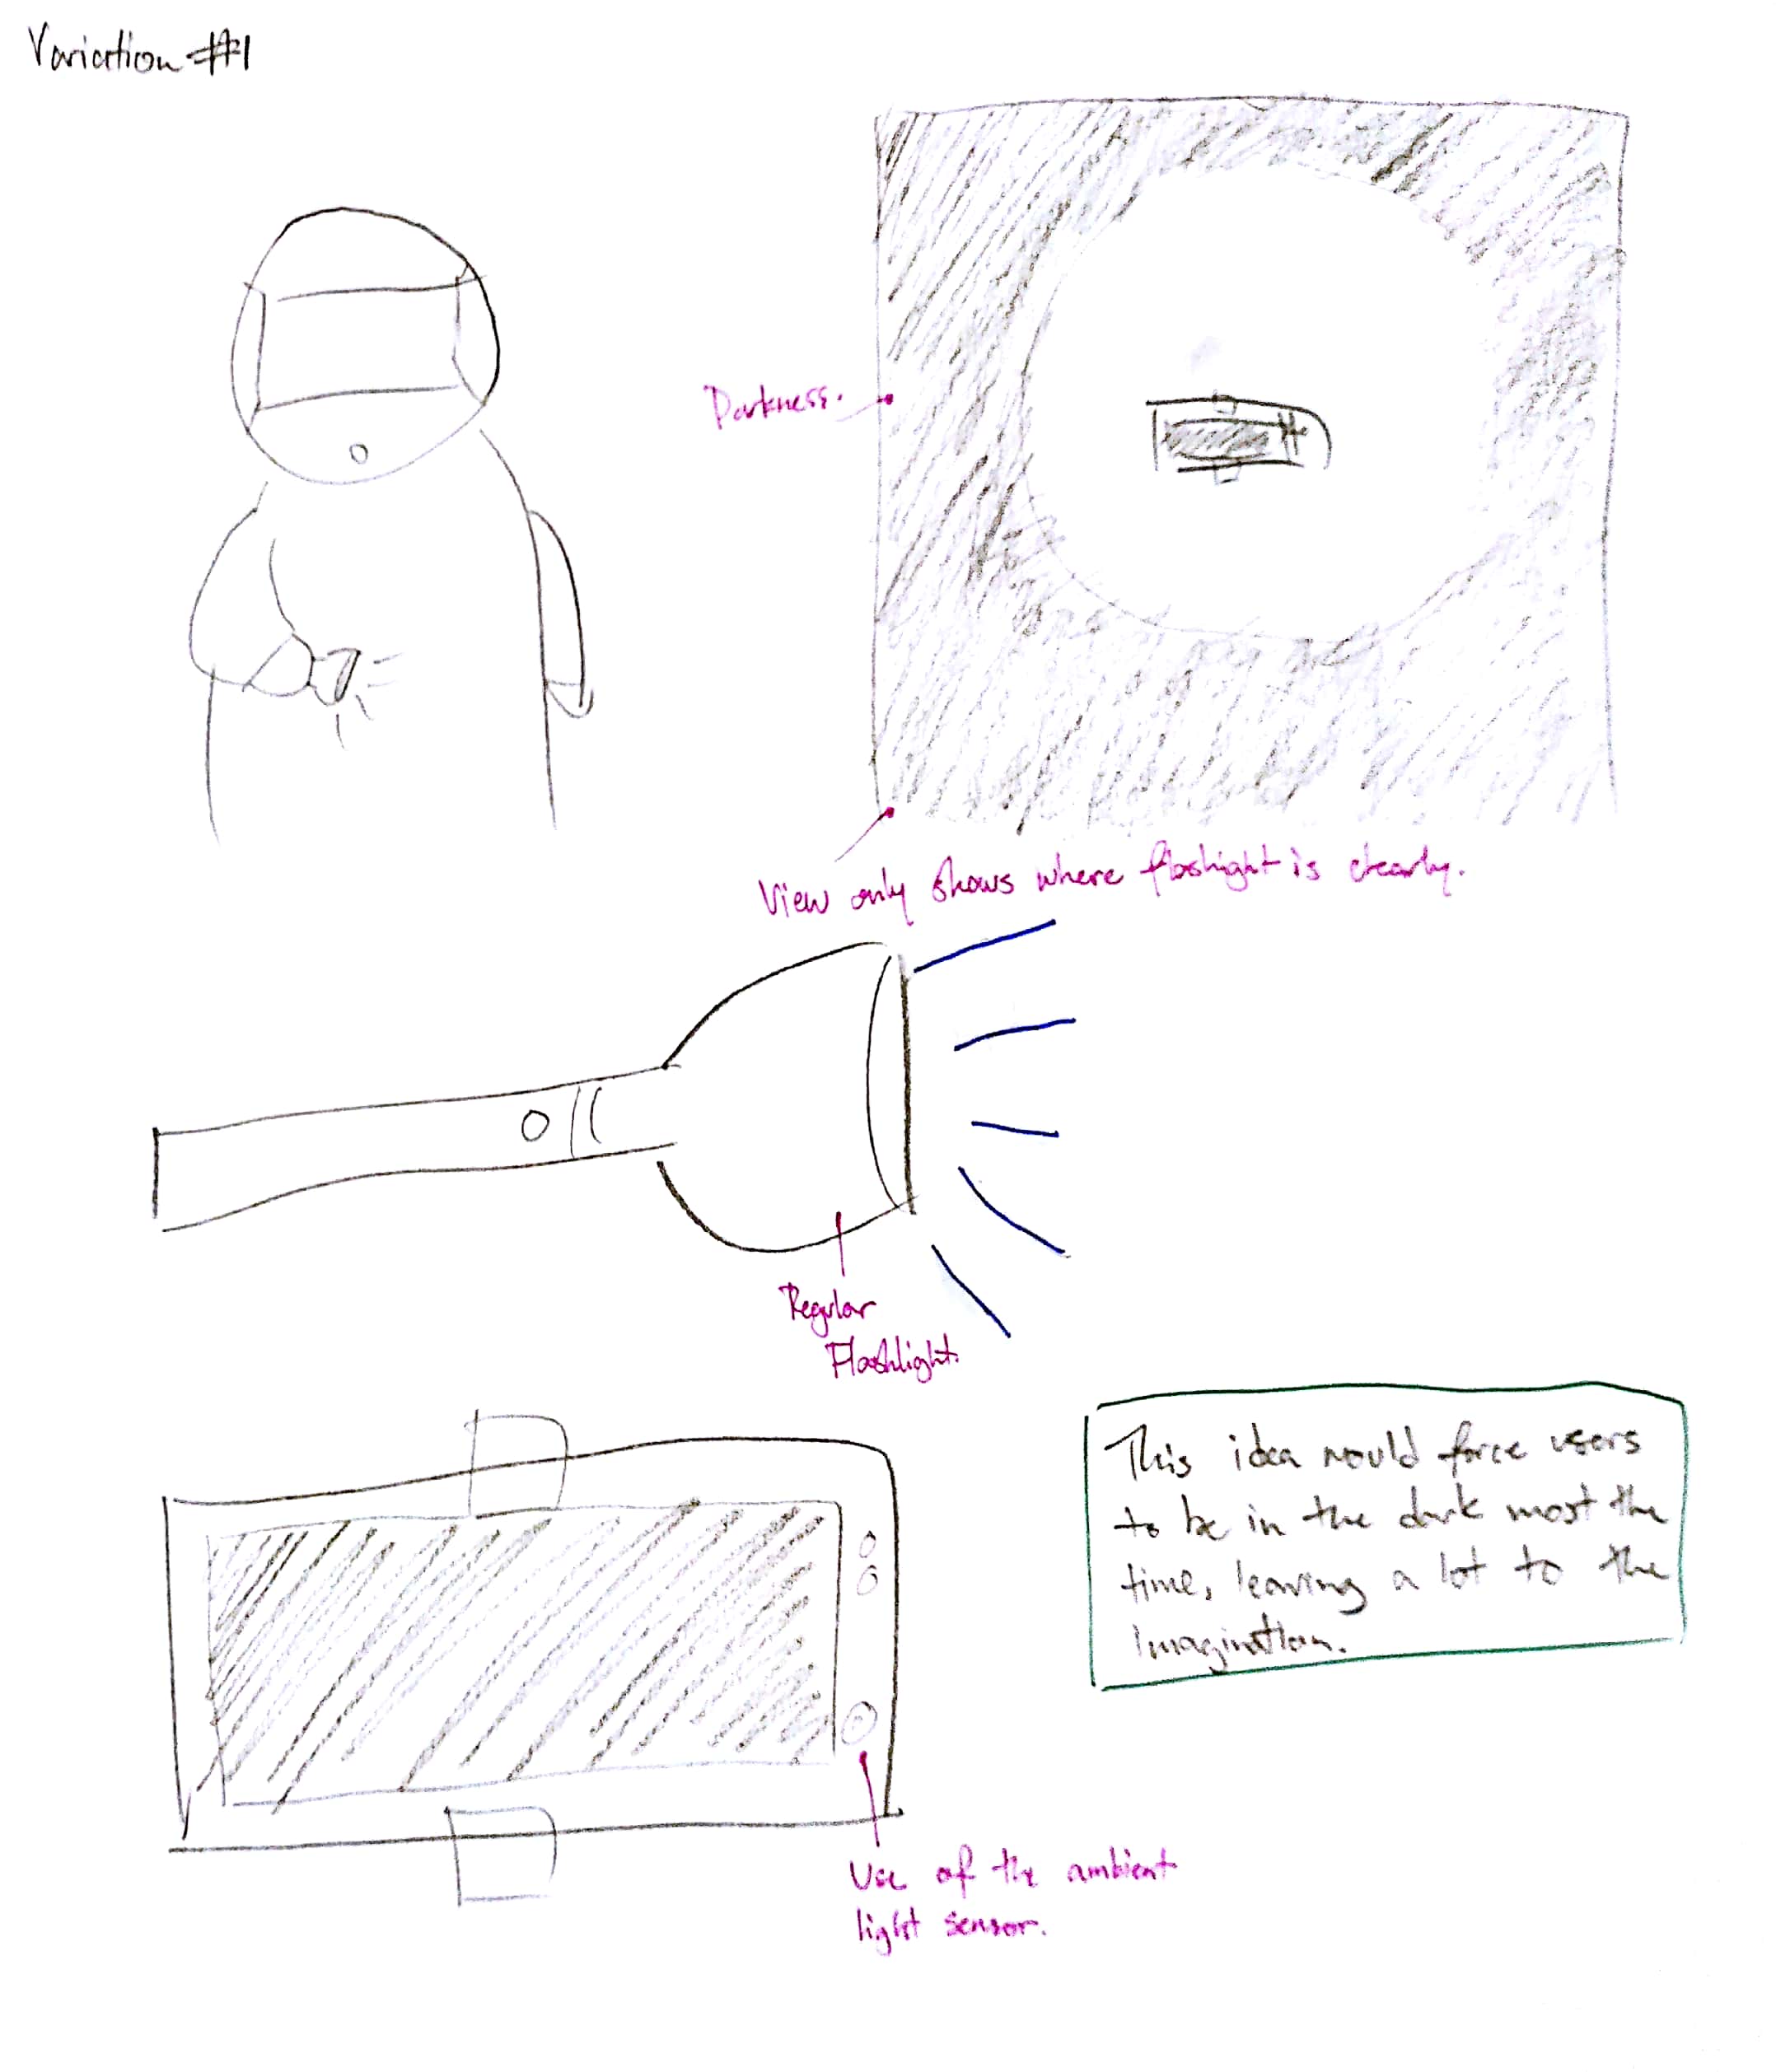 Variation #1
Darkness.
View only shows where flashight is clearly.
Regular
Flashlight.
This idea would force users
to be in the dark most the
time, leaving a lot to the
imagination.
Use of the ambient
light sensor.